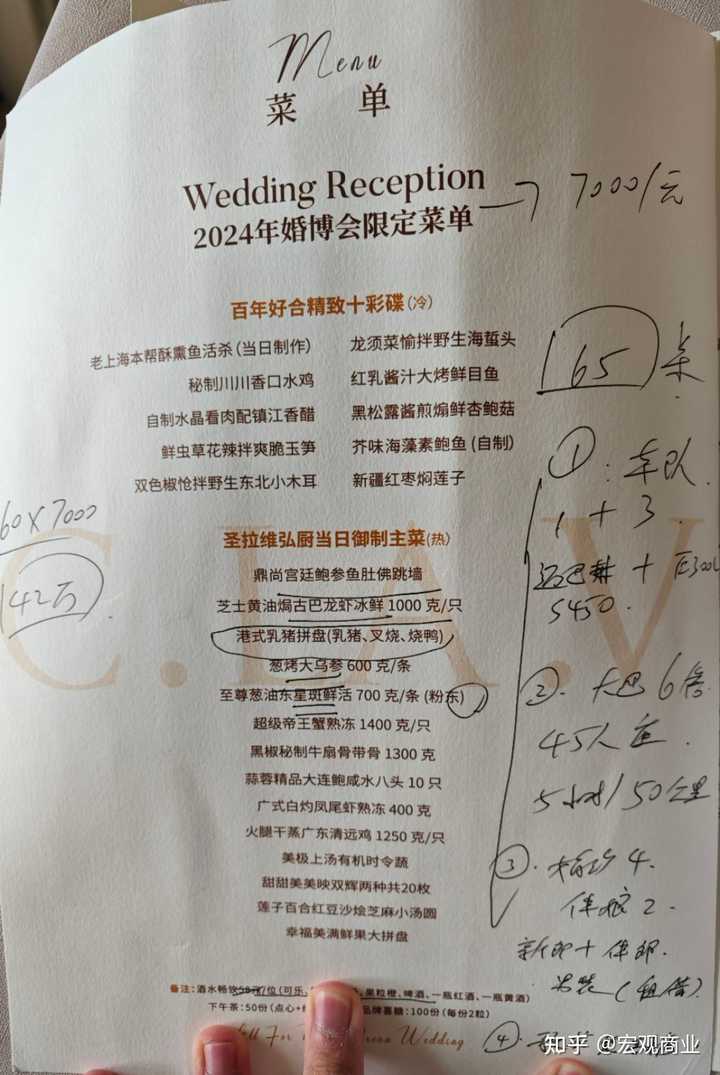 Menu
菜 单
Wedding Reception
2024年婚博会限定菜单
7000/元
百年好合精致十彩碟(冷)
老上海本帮酥熏鱼活杀(当日制作) 龙须菜愉拌野生海蜇头
秘制川川香口水鸡 红乳酱汁大烤鲜目鱼
自制水晶看肉配镇江香醋 黑松露酱煎煸鲜杏鲍菇
鲜虫草花辣拌爽脆玉笋 芥味海藻素鲍鱼(自制)
双色椒怆拌野生东北小木耳 新疆红枣焖莲子
65 桌
圣拉维弘厨当日御制主菜(热)
鼎尚宫廷鲍参鱼肚佛跳墙
芝士黄油焗古巴龙虾冰鲜 1000 克/只
港式乳猪拼盘(乳猪、叉烧、烧鸭)
葱烤大乌参 600 克/条
至尊葱油东星斑鲜活 700 克/条 (粉东)
超级帝王蟹熟冻 1400 克/只
黑椒秘制牛扇骨带骨 1300 克
蒜蓉精品大连鲍咸水八头 10 只
广式白灼凤尾虾熟冻 400 克
火腿干蒸广东清远鸡 1250 克/只
美极上汤有机时令蔬
甜甜美美映双辉两种共20枚
莲子百合红豆沙烩芝麻小汤圆
幸福美满鲜果大拼盘
60×7000
42万
① 车队
1+3
迈巴赫+E300L
S450
② 大巴6倍
45人座
5小时/50公里
③ 4
伴娘2
新郎+伴郎
男装(租借)
④
备注:酒水畅饮58元/位(可乐、 果粒橙、啤酒、一瓶红酒、一瓶黄酒)
下午茶:50份(点心+ 品牌喜糖:100份(每份2粒)
Wedding
知乎 @宏观商业